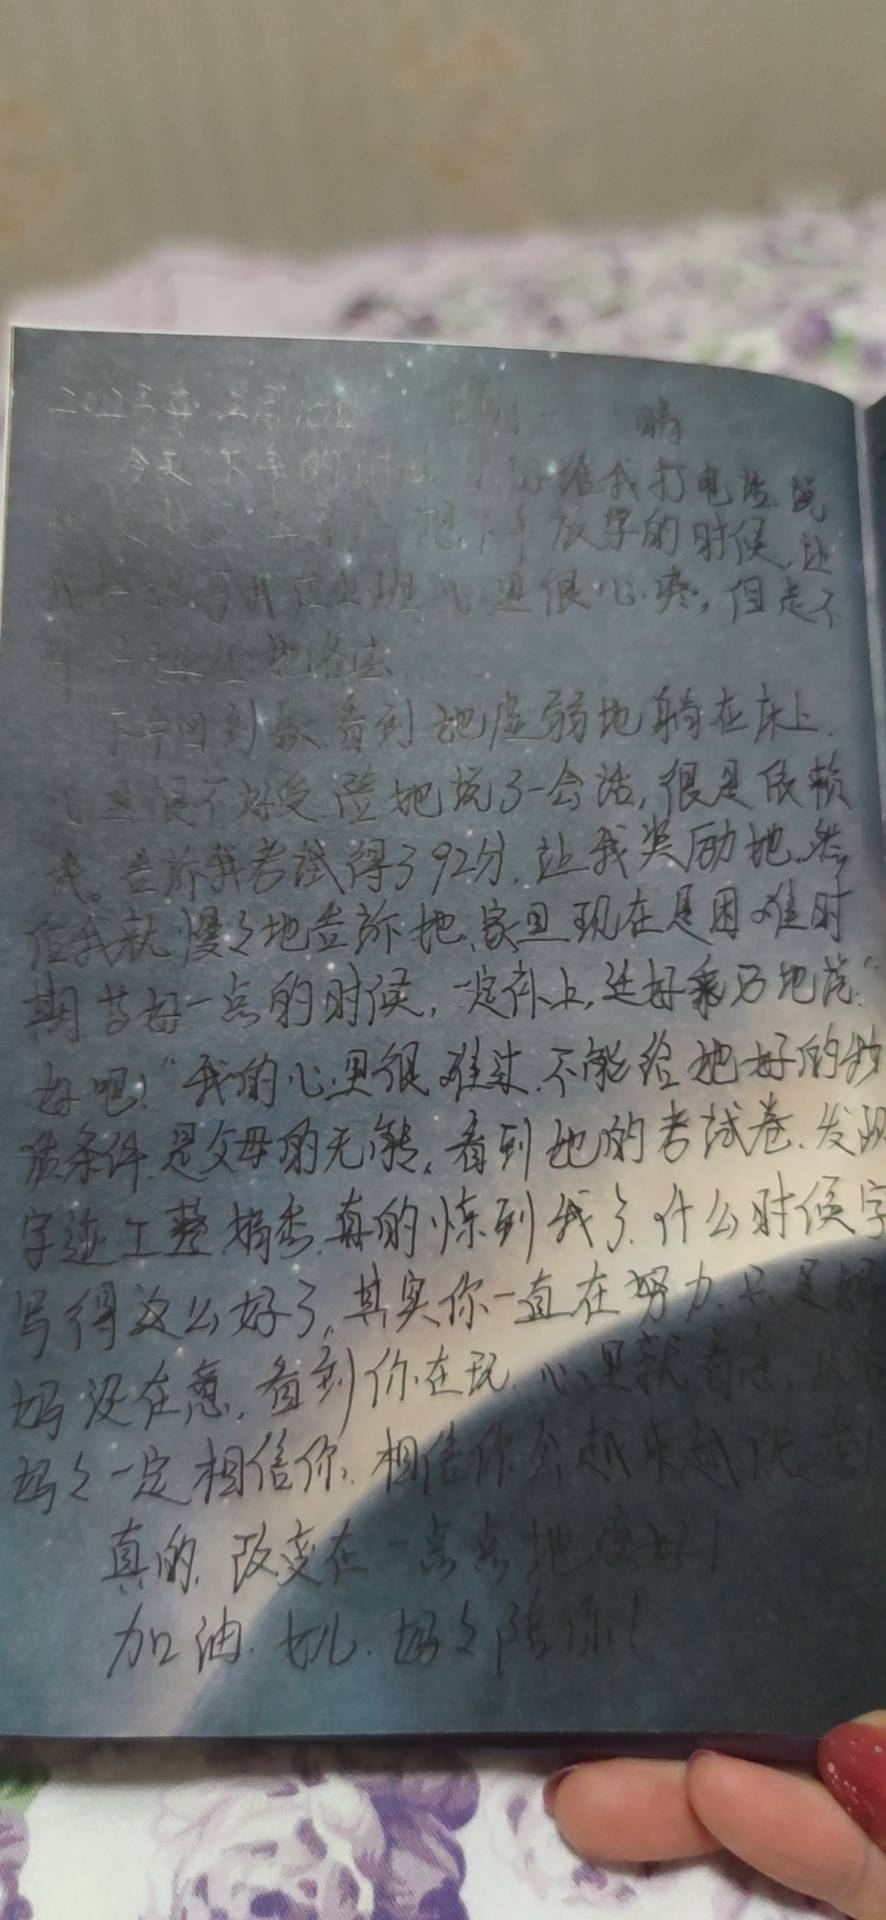 2023年 三月 晴
今天下午的 给我打电话, 说
想下午放学的时候, 让
我 我在上班心里很心疼, 但走不
她爸去
下午回到家, 看到她虚弱地躺在床上,
心里很不好受, 陪她说了一会话, 很是依赖
我。告诉我考试得了92分, 让我奖励她, 然
后我就慢々地告诉她, 家里现在是困难时
期, 等好一点的时候, 一定补上, 还好乖巧地说:“
好吧!”我的心里很难过, 不能给她好的物
质条件, 是父母的无能, 看到她的考试卷, 发现
字迹工整 真的惊到我了, 什么时候字
写得这么好了, 其实你一直在努力, 只是妈
妈没在意, 看到你在玩, 心里就着急, 从
妈々一定相信你, 相信你会越来越优秀
真的, 改变在一点点地变好!
加油, 女儿, 妈々陪你!